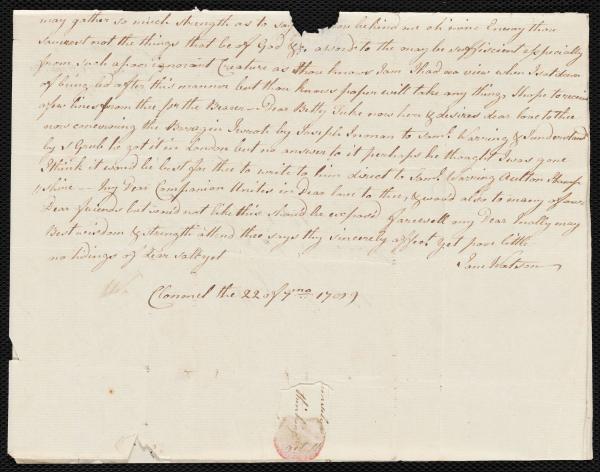 may gather so much strength as to say behind me oh none Enemy thou
savorest not the things that be of God &c. a word to the may be suffiscient especially
from such a poor ignorant Creature as thou knows I am I had no view when I sat down
of being led after this manner but thou knows paper will take any thing, I hope to receive
a few lines from thee pr the Bearer - Dear Betty Tuke now here & desires dear love to thee
now concerning the Barrogon I wrote by Joseph Inman to Saml. Warring & I understand
by J Grubb he got it in London but no answer to it perhaps he thought I was gone
I think it would be best for thee to write to him direct to Saml. Warring Aulton Hamp
shire -- My Dear Companion Unites in Dear love to thee, & would also to many of our
Dear friends but would not like this should be exposed farewell my Dear may
Best wisdom & strength attend thee says thy sincerely affect. yet poor little
no tidings of dear Sally yet Jane Watson
Clonmel the 22 of 7mo. 1789